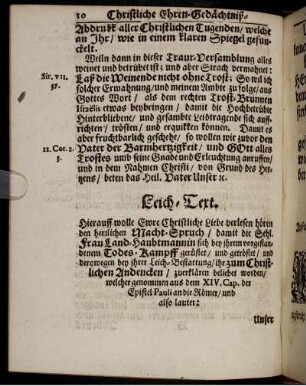 10 Christliche Ehren-Gedächtniß-
Abdruck aller Christlichen Tugenden/ welche
an Ihr/ wie in einem klaren Spiegel gefun-
ckelt.
Weiln dann in dieser Traur-Versamblung alles
weinet und betrübet ist: und aber Sirach vermahnet:
Sir. VII.
37.
Laß die Weinende nicht ohne Trost: So wil ich
solcher Ermahnung/ und meinem Ambte zu folge/ aus
Gottes Wort/ als dem rechten Trost-Brunnen
Israëlis etwas beybringen/ damit die Hochbetrübte
Hinterbliebene/ und gesambte Leidtragende sich auff-
richten/ trösten/ und erquicken können. Damit es
aber fruchtbarlich geschehe/ so wollen wir zuvor den
II. Cor. I.
3.
Vater der Barmhertzigkeit/ und GOtt alles
Trostes umb seine Gnade und Erleuchtung anruffen/
und in dem Nahmen Christi/ von Grund des Her-
tzens/ beten das Heil. Vater Unser ꝛc.
Leich-Text.
Hierauff wolle Ewre Christliche Liebe verlesen hören
den herzlichen Macht-Spruch/ damit die Sehl.
Frau Land-Haubtmannin sich bey ihrem vorgestan-
denem Todes-Kampff gerüstet/ und getröstet/ und
derowegen bey ihrer Leich-Bestattung/ Ihr zum Christ-
lichen Andencken/ zuerklären beliebet worden/
welcher genommen aus dem XIV. Cap. der
Epistel Pauli an die Römer/ und
also lautet:
Unser